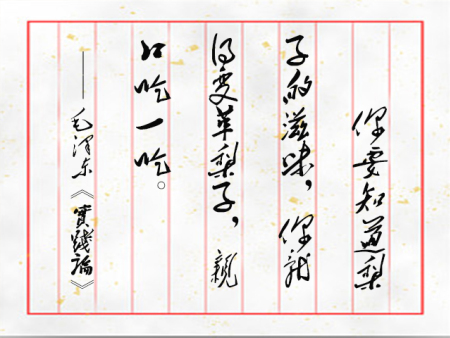 你要知道梨
子的滋味，你就
得变革梨子，親
口吃一吃。
——毛泽东《實踐論》